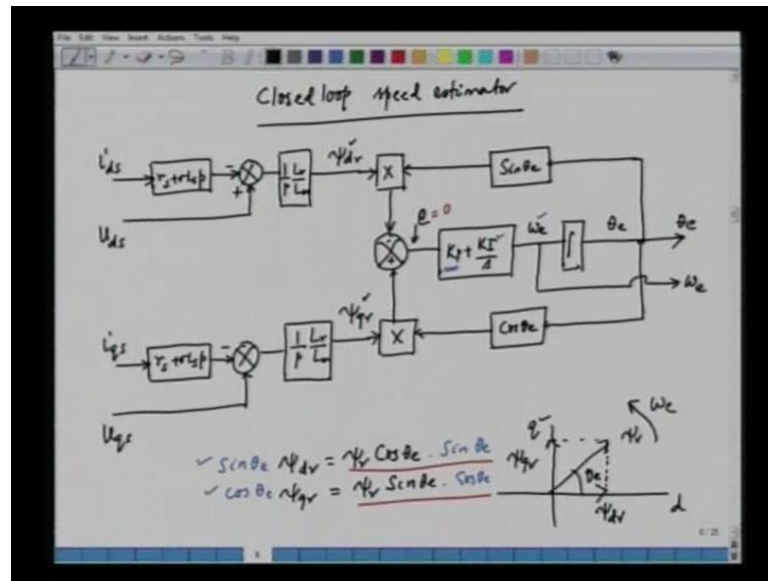 File Edit View Insert Actions Tools Help
Closed loop speed estimator
i_ds
r_s+σL_sp
-
+
1/p L_r/L_m
ψ_dr
X
Sinθe
U_ds
e = 0
-
+
K_p + K_I/s
ω_e
∫
θe
θe
ω_e
i_qs
r_s+σL_sp
-
1/p L_r/L_m
ψ_qr
X
Cosθe
U_qs
✓ sinθe ψ_dr = ψ_r Cosθe . Sinθe
✓ cosθe ψ_qr = ψ_r Sinθe . Cosθe
q
ψ_qr
ψ_r
ω_e
θe
ψ_dr
d